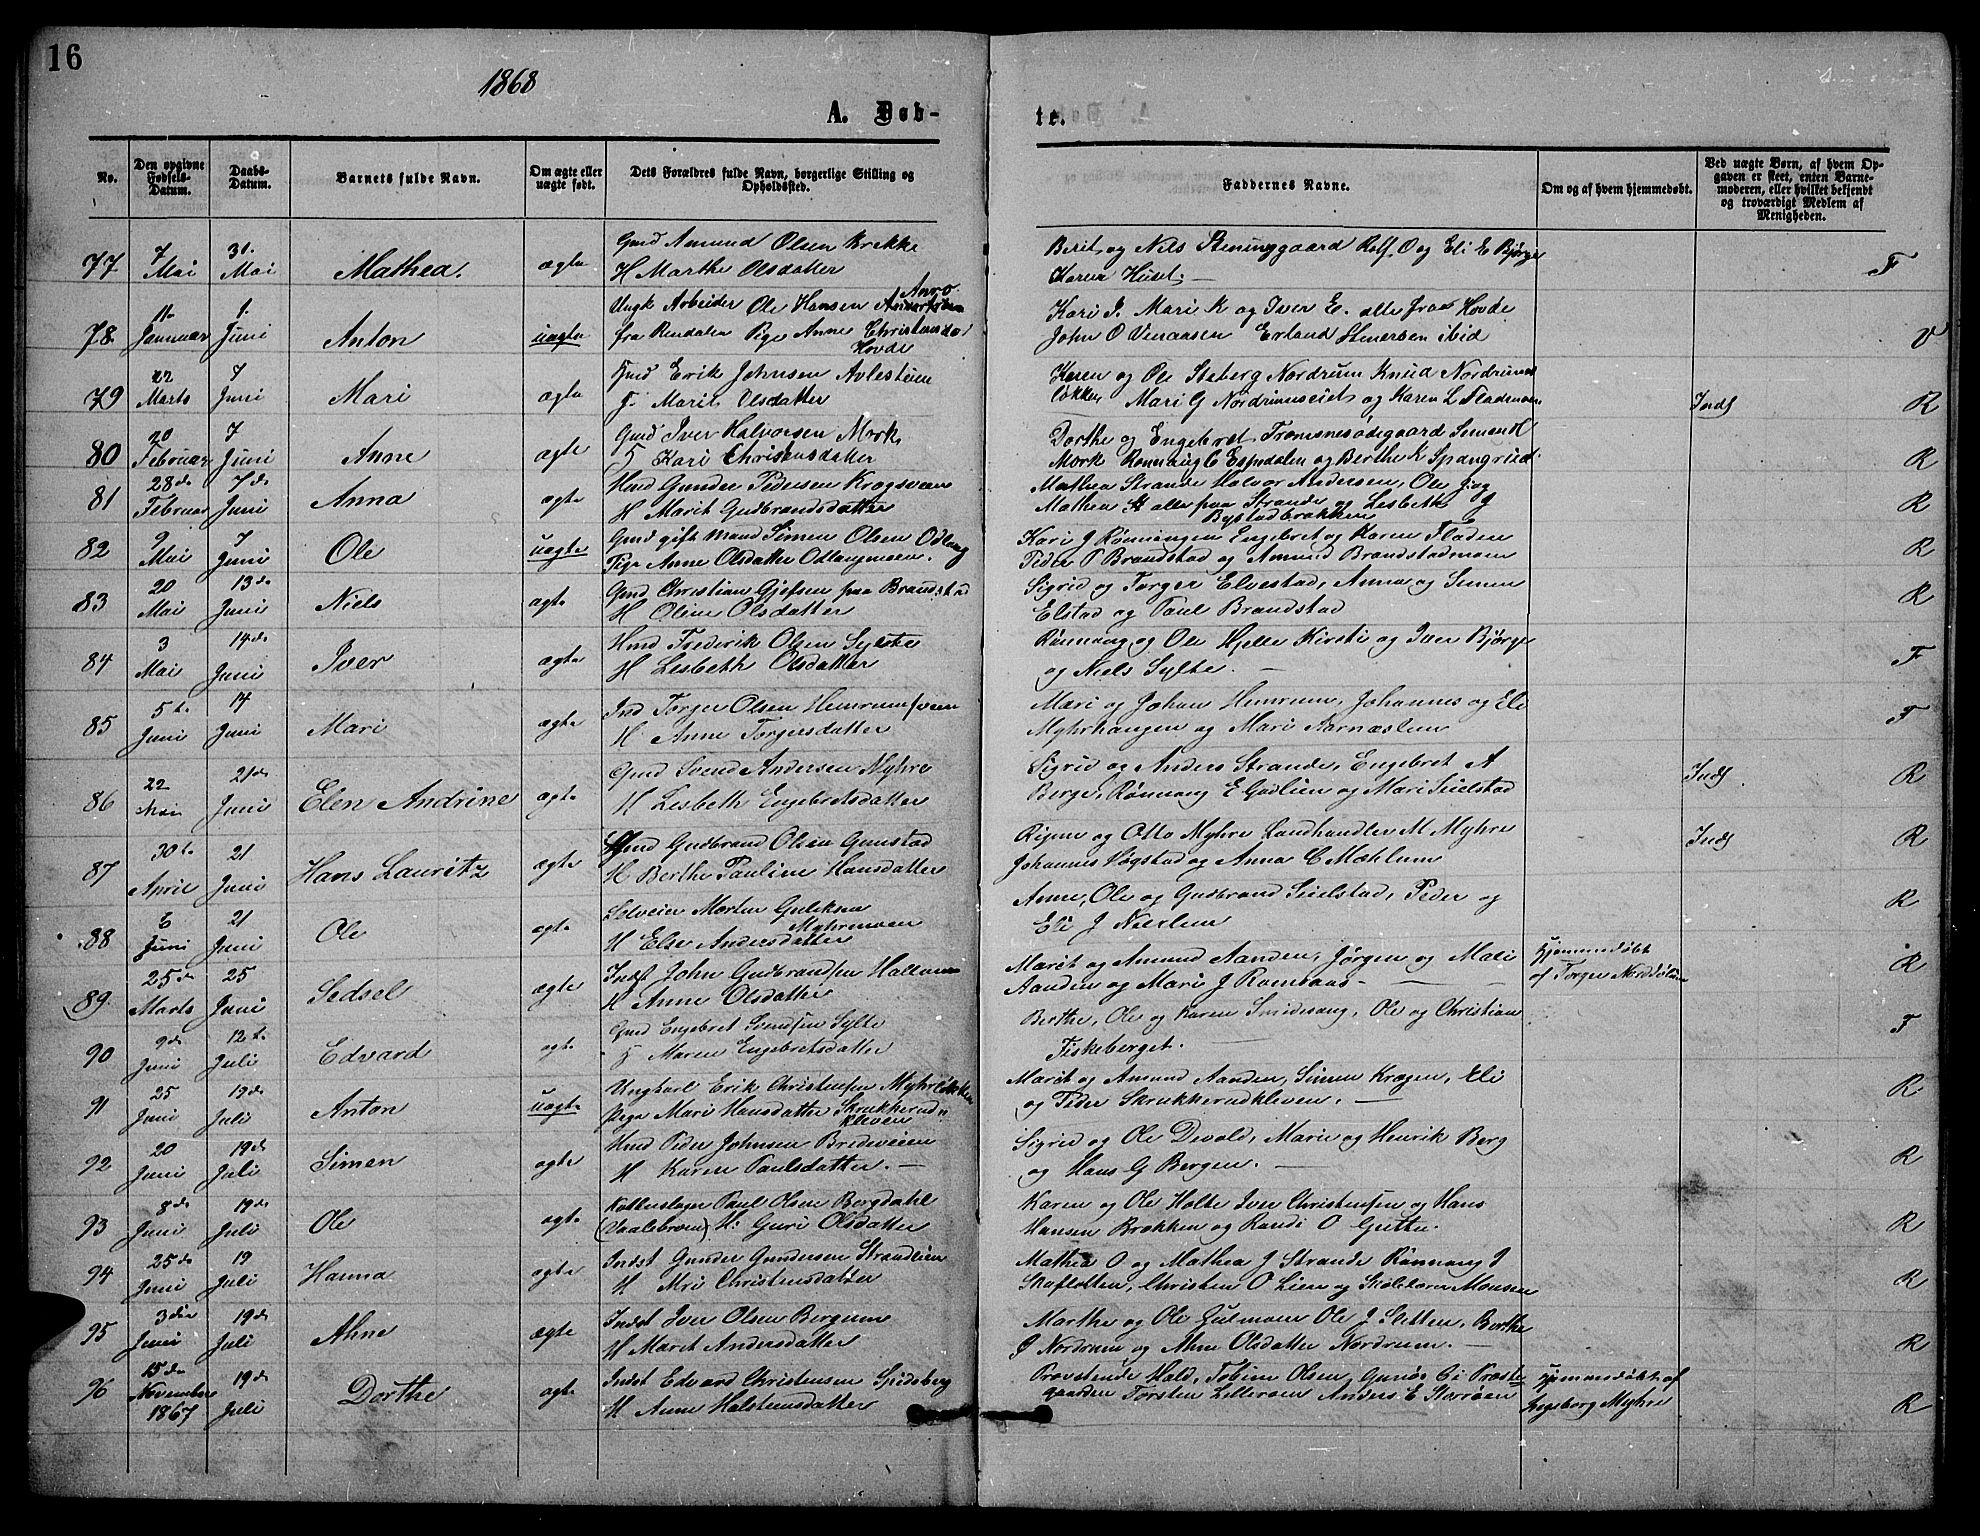 16
1868
A. Døb-
te.
No.
Den opgivne Fødsels-Datum.
Daabs-Datum.
Barnets fulde Navn.
Om ægte eller uægte født.
Dets Forældres fulde Navn, borgerlige Stilling og Opholdssted.
Faddernes Navne.
Om og af hvem hjemmedøbt.
Ved uægte Børn, af hvem Opgaven er skeet, enten Barnemoderen, eller hvilket bekjendt og troværdigt Medlem af Menigheden.
77 7 Mai 31. Mai Mathea. ægte Gmd Amund Olsen Krekke
H Marthe Olsdatter
Berit og Nils Steninggaard Rolf O og Eli E Bjørge
Karen Huset. — F
78 11 Januar 1. Juni Anton uægte Ungk Arbeider Ole Hansen
fra Rendalen Pige Anne Christensda Hovde
Kari J. Mari K og Iver E. alle fraa Hovde
John O Venaasen Erland Stenersen ibid V
79 22 Marts 7 Juni Mari ægte Gmd Erik Johnsen
Marit Olsdatter
Karen og Ole Staberg Nordrum Knud Nordrums
løkken Mari G Nordrumseiet og Karen L Flademoen Inds R
80 20 Februar 7 Juni Anne ægte Gmd Iver Halvorsen Mork
H Kari Christensdatter
Dorthe og Engebret Tromsnesødegaard Simen
Mork Rønnaug C Espedalen og Berthe K Spangrud. R
81 28de Februar 7de Juni Anna ægte Hmd Gunder Pedersen Krogsveen
H Marit Gudbrandsdatter
Mathea Strande Halvor Andersen, Ole J og
Mathea alle paa Strande og Lisbeth
Bystadbrækken R
82 9 Mai 7 Juni Ole uægte Gmd gift Mand Simen Olsen Odlaug
Pige Anne Olsdatter Odlaugmoen.
Kari J Rønningen Engebret og Karen Fladen
Peder P Brandstad og Amund Brandstadmoen R
83 20 Mai 13de Juni Niels ægte Gmd Christian Gjefsen paa Brandstad
H Oline Olsdatter
Sigrid og Torger Elvestad, Anna og Simen
Elstad og Paul Brandstad R
84 3 Mai 14de Juni Iver ægte Hmd Frederik Olsen Sylte
H Lisbeth Olsdatter
Rønnaug og Ole Hjelle Kirsti og Iver Bjørge
og Niels Sylte. — F
85 5te Juni 14 Juni Mari ægte Ind Torger Olsen
H Anne Torgersdatter
Mari og Johan Hemrum, Johannes og Eli
Myhrhaugen og Mari F
86 22 Mai 21de Juni Elen Andrine ægte Gmd Svend Andersen Myhre
H Lisbeth Engebretsdatter
Sigrid og Anders Strande, Engebret A
Berge, Rønnaug E Gudlien og Mari Seielstad Inds R
87 30te April 21 Juni Hans Lauritz ægte Gmd Gudbrand Olsen Gunstad
H Berthe Pauline Hansdatter
og Otto Myhre Landhandler M Myhre
Johannes Høgstad og Anna C Mæhlum Inds R
88 6 Juni 21 Juni Ole ægte Selveier Morten Guliksen
Myhrmoen
H Else Andersdatter
Anne, Ole og Gudbrand Seielstad, Peder og
Eli J R
89 25de Marts 25 Juni Sidsel ægte Indst John Gudbrandsen
H Anne Olsdatter
Marit og Amund Aanden, Jørgen og Mari
Aanden og Mari J — —
Hjemmedøbt
af Torgen R
90 9de Juni 12te Juli Edvard ægte Gmd Engebret Svendsen Sylte
H Maren Engebretsdatter
Berthe, Ole og Karen Smidesang, Ole og Christian
Fiskeberget. — F
91 25 Juni 19de Juli Anton uægte Ungkarl Erik Christensen Myhrløkken
Pige Mari Hansdatter Skrukkeruds
kleven
Marit og Amund Aanden, Simen Kragen, Eli
og Peder Skrukkerudkleven. — R
92 20 Juni 19de Juli Simen ægte Hmd Peder Johnsen Bredeveien
H Karen Paulsdatter. —
Sigrid og Ole Devold, Marie og Henrik Berg
og Hans G Bergen. — R
93 8de Juni 19de Juli Ole ægte Paul Olsen Bergdahl
H: Guri Olsdatter
Karen og Ole Holte Iver Christensen og Hans
Hansen Brækken og Randi O R
94 25de Juni 19 Juli Hanna ægte Indst Gunder Gundersen Strandlien
H Mri Christensdatter
Mathea O og Mathea J Strande Rønnaug J
Skaflotten, Christen O Lien og Skolelærer Monsen R
95 3die Juni 19de Juli Ahne ægte Indst Iver Olsen Bergum
H Marit Andersdatter
Marthe og Ole Ole J Sletten, Berthe
Nordrum og Ahne Olsdatter Nordrum. — R
96 15de November 1867 19de Juli Dorthe ægte Indst Edvard Christensen
H Anne Halstensdatter
Provstinde Hald, Tobine Olsen, Præste
gaarden Torsten Lilleroen Anders E
Hjemmedøbt af
Ingeborg Myhre R